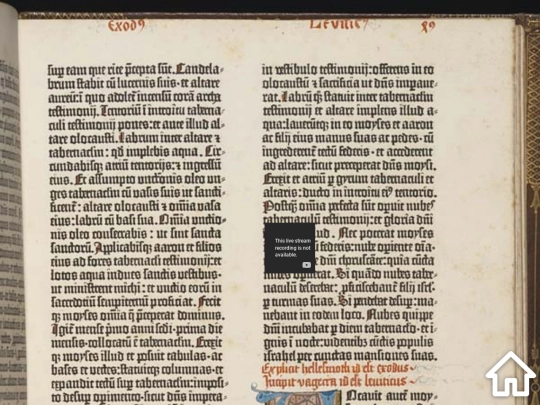 Exodꝰ
Leuiticꝰ
sup eam que rite p̄cepta sūt. Candela-
brum stabit cū lucernis suis: et altare
aureū: ī quo adolet̄ incensū corā archa
testimonij. Tentoriū ī introitu taberna-
culi testimonij pones: et ante illud al-
tare olocausti. Labrum inter altare ⁊
tabernaclm: qd̄ implebis aqua. Cir-
cundabisqꝫ atriū tentorijs: ⁊ ingressū
eius. Et assumpto unctionis oleo un-
ges tabernaclm cū vasis suis ut sancti-
ficent̄: altare olocausti ⁊ om̄ia vasa
eius: labrū cū basi sua. Om̄ia unctio-
nis oleo consecrabis: ut sint sancta
sanctorū. Applicabisqꝫ aaron et filios
eius ad fores tabernacli testimonij: et
lotos aqua indues sanctis vestibus:
ut ministrent michi: et unctio eorū in
sacerdotiū sempiternū proficiat. Fecit
qꝫ moyses omīa q̄ preceperat dominus.
Igit̄ mense p̄mo anni sedi: prima die
mensis: collocatū ē tabernaclm. Erexit-
qꝫ moyses illud et posuit tabulas: ac
bases et vectes: statuitqꝫ columnas: et
expandit tectū sup tabernaclm: imposi-
to desup operimento: sicut dn̄s impera-
in vestibulo testimonij: offerens in eo
olocaustū ⁊ sacrificia ut dn̄s impaue-
rat. Labrū qꝫ statuit inter tabernaclm
testimonij et altare implens illud a-
qua: lauerūtqꝫ in eo moyses et aaron
ac filij eius manus suas ac pedes: cū
ingrederent̄ tectū federis: et accederent
ad altare: sicut preceperat dn̄s moysi.
Erexit et atriū p gyrum tabernacli et
altaris: ducto in introitu ei⁹ tentorio.
Postqꝫ om̄ia p̄fecta sūt opuit nubes
tabernaculū testimonij: et gloria dn̄i
Nec poterat moyses
federis: nube operiente om̄ia
dn̄i choruscante: quia cūcta
Si quādo nubes taber-
naculū deserebat: p̄ficiscebant̄ filij isrl̄
p turmas suas. Si pendebat desup: ma-
nebant in eodem loco. Nubes quippe
dn̄i incubabat p diem tabernaclo: et i-
gnis ī nocte: videntibꝫ cūctis populis
israhel per cunctas mansiones suas.
Explicit hellesmoth id est exodus
Incipit vagecra id est leuiticus
This live stream
recording is not
available.